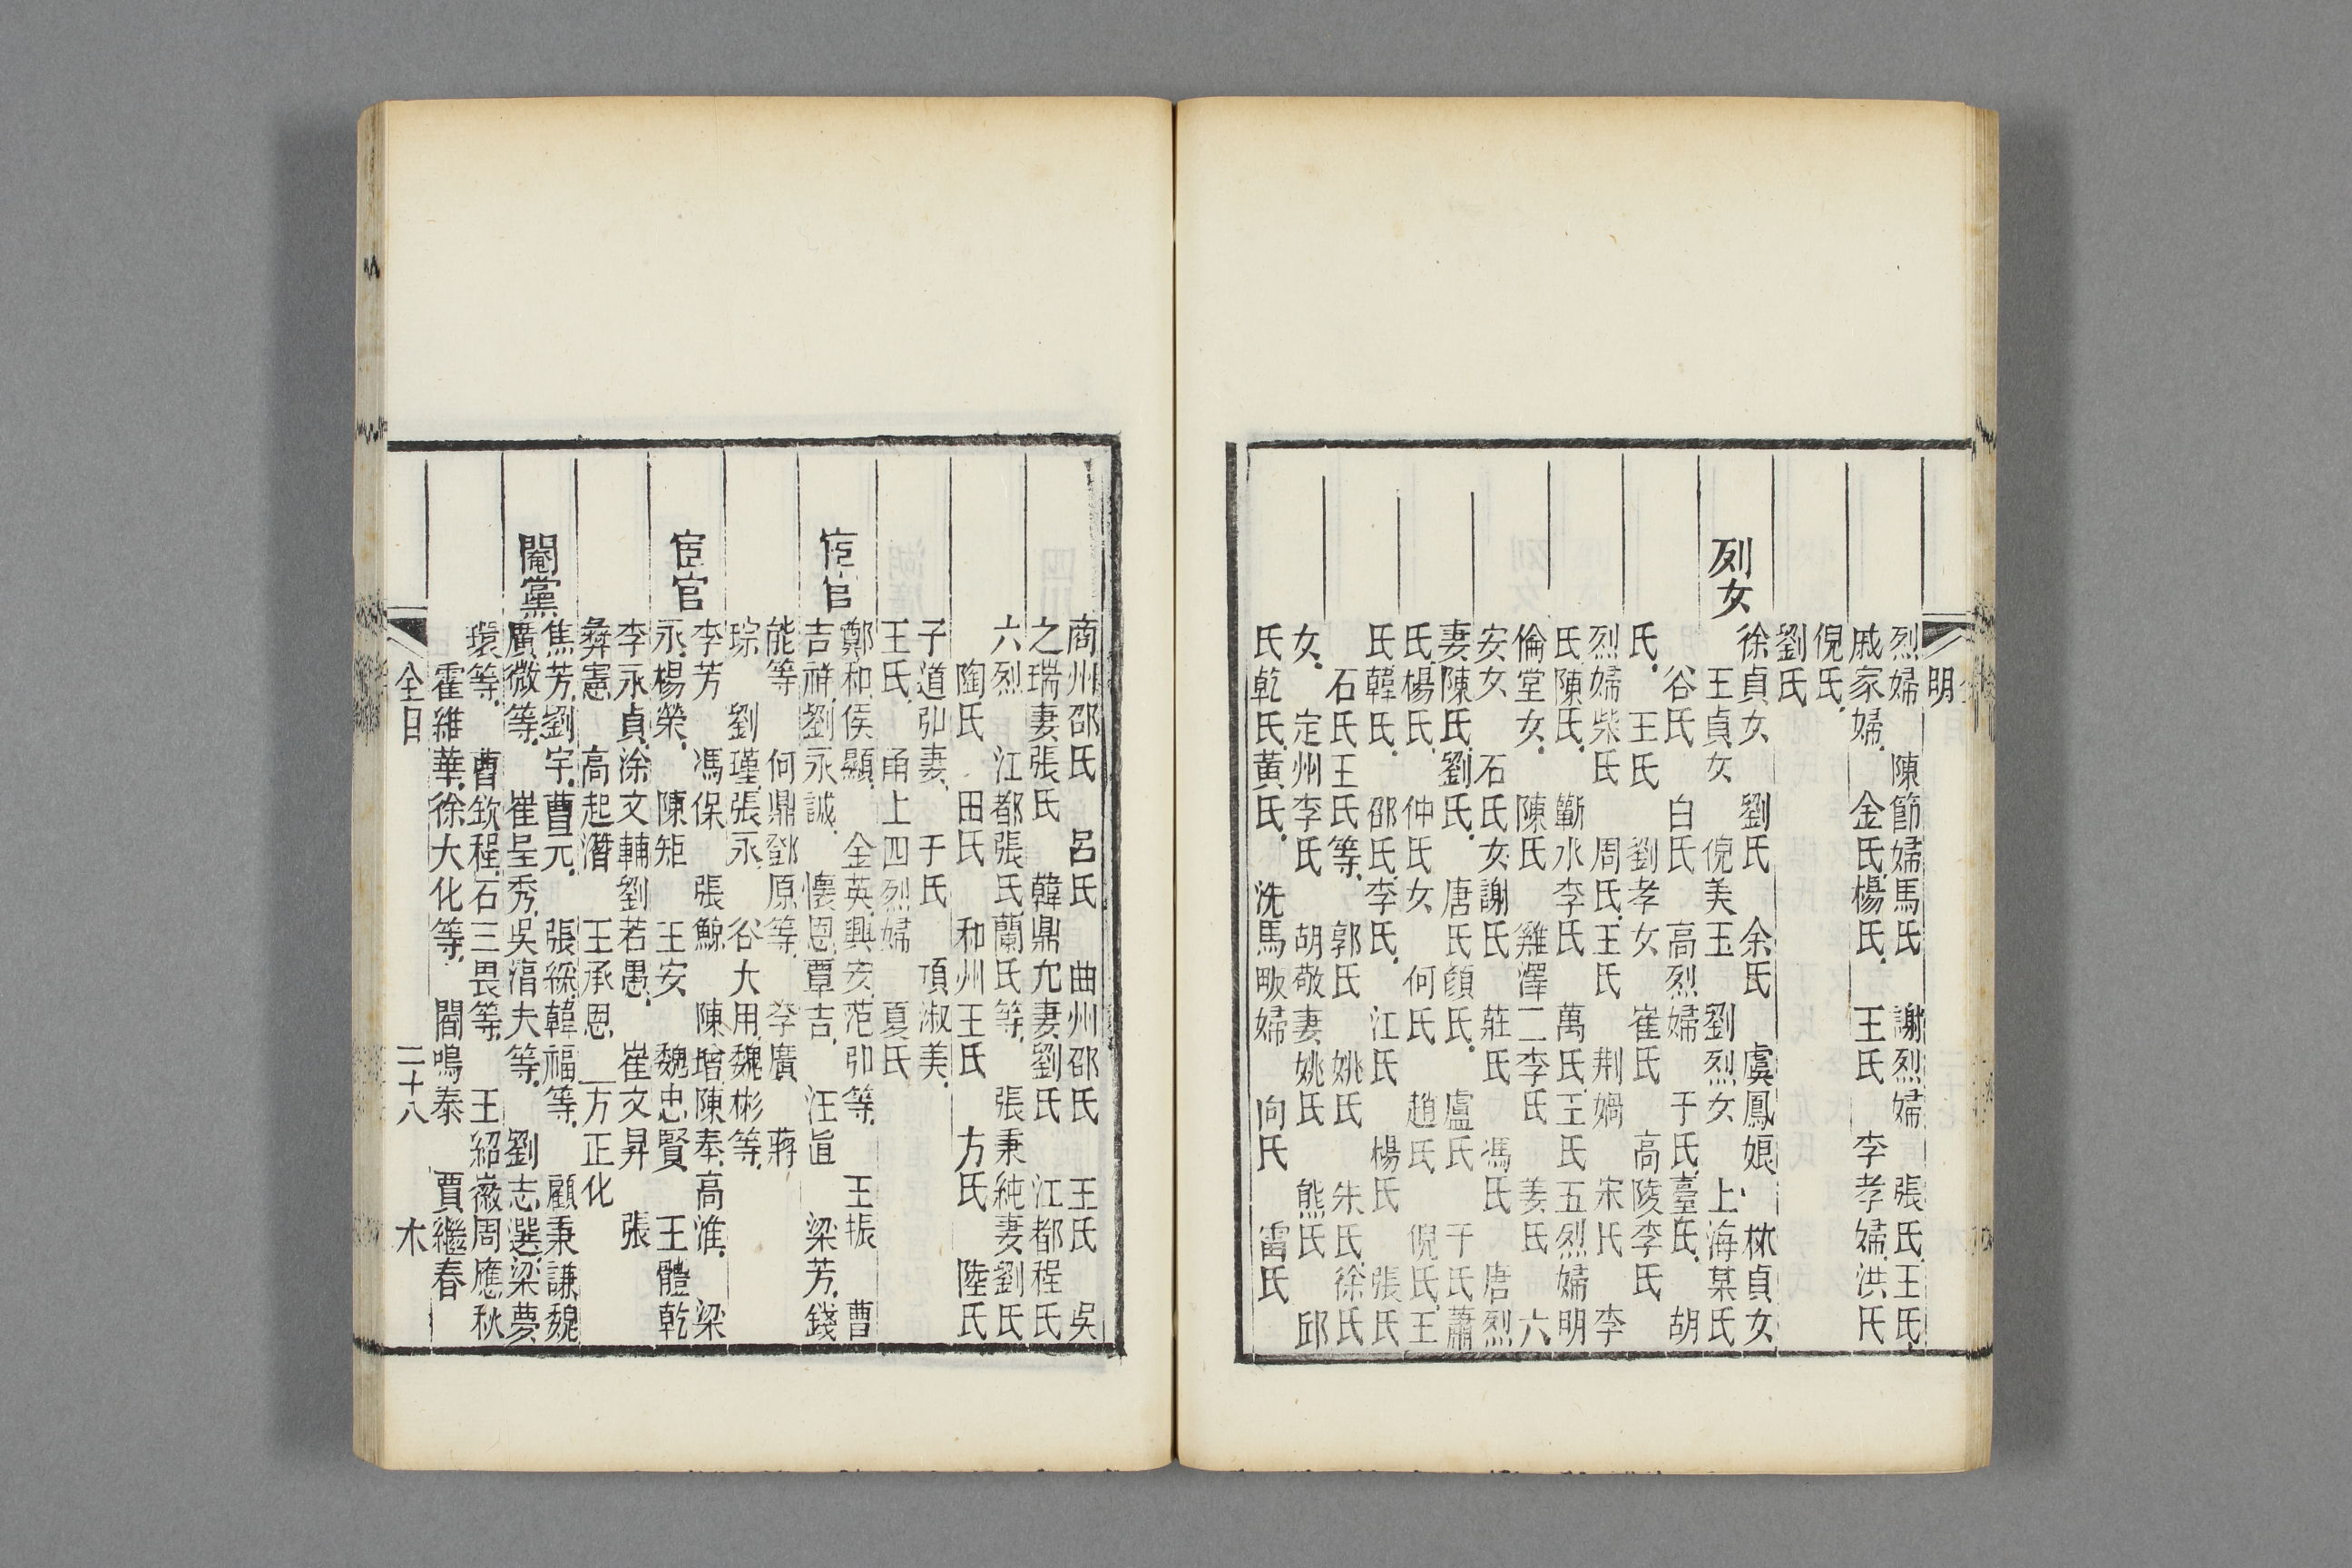 明
烈婦　陳節婦馬氏　謝烈婦　張氏王氏
戚家婦　金氏楊氏　王氏　李孝婦洪氏
倪氏
劉氏
列女
徐貞女　劉氏　余氏　虞鳳娘　林貞女
王貞女　倪美玉　劉烈女　上海某氏
谷氏　白氏　高烈婦　于氏臺氏　胡
氏　王氏　劉孝女　崔氏　高陵李氏
烈婦柴氏　周氏王氏　荆媧　宋氏　李
氏陳氏　蘄水李氏　萬氏王氏五烈婦明
倫堂女　陳氏　雞澤二李氏　姜氏　六
安女　石氏女謝氏　莊氏　馮氏　唐烈
妻陳氏劉氏　唐氏顔氏　盧氏　于氏蕭
氏楊氏　仲氏女　何氏　趙氏　倪氏王
氏韓氏　邵氏李氏　江氏　楊氏　張氏
石氏王氏等　郭氏　姚氏　朱氏徐氏
女　定州李氏　胡敬妻姚氏　熊氏　邱
氏乾氏黃氏　洗馬畈婦　向氏　雷氏
商州邵氏　呂氏　曲州邵氏　王氏　吳
之瑞妻張氏　韓鼎允妻劉氏　江都程氏
六烈　江都張氏蘭氏等　張秉純妻劉氏
陶氏　田氏　和州王氏　方氏　陸氏
子道弘妻　于氏　項淑美
王氏　甬上四烈婦　夏氏
宦官
鄭和侯顯　金英興安范弘等　王振　曹
吉祥劉永誠　懷恩覃吉　汪直　梁芳錢
能等　何鼎鄧原等　李廣　蔣
琮　劉瑾張永　谷大用魏彬等
李芳　馮保　張鯨　陳增陳奉高淮　梁
宦官
永楊榮　陳矩　王安　魏忠賢　王體乾
李永貞涂文輔劉若愚　崔文昇　張
彝憲　高起潛　王承恩　方正化
閹黨
焦芳劉宇曹元　張綵韓福等　顧秉謙魏
廣微等　崔呈秀吳淳夫等　劉志選梁夢
環等　曹欽程石三畏等　王紹徽周應秋
霍維華徐大化等　閻鳴泰　賈繼春
全目　二十八　木